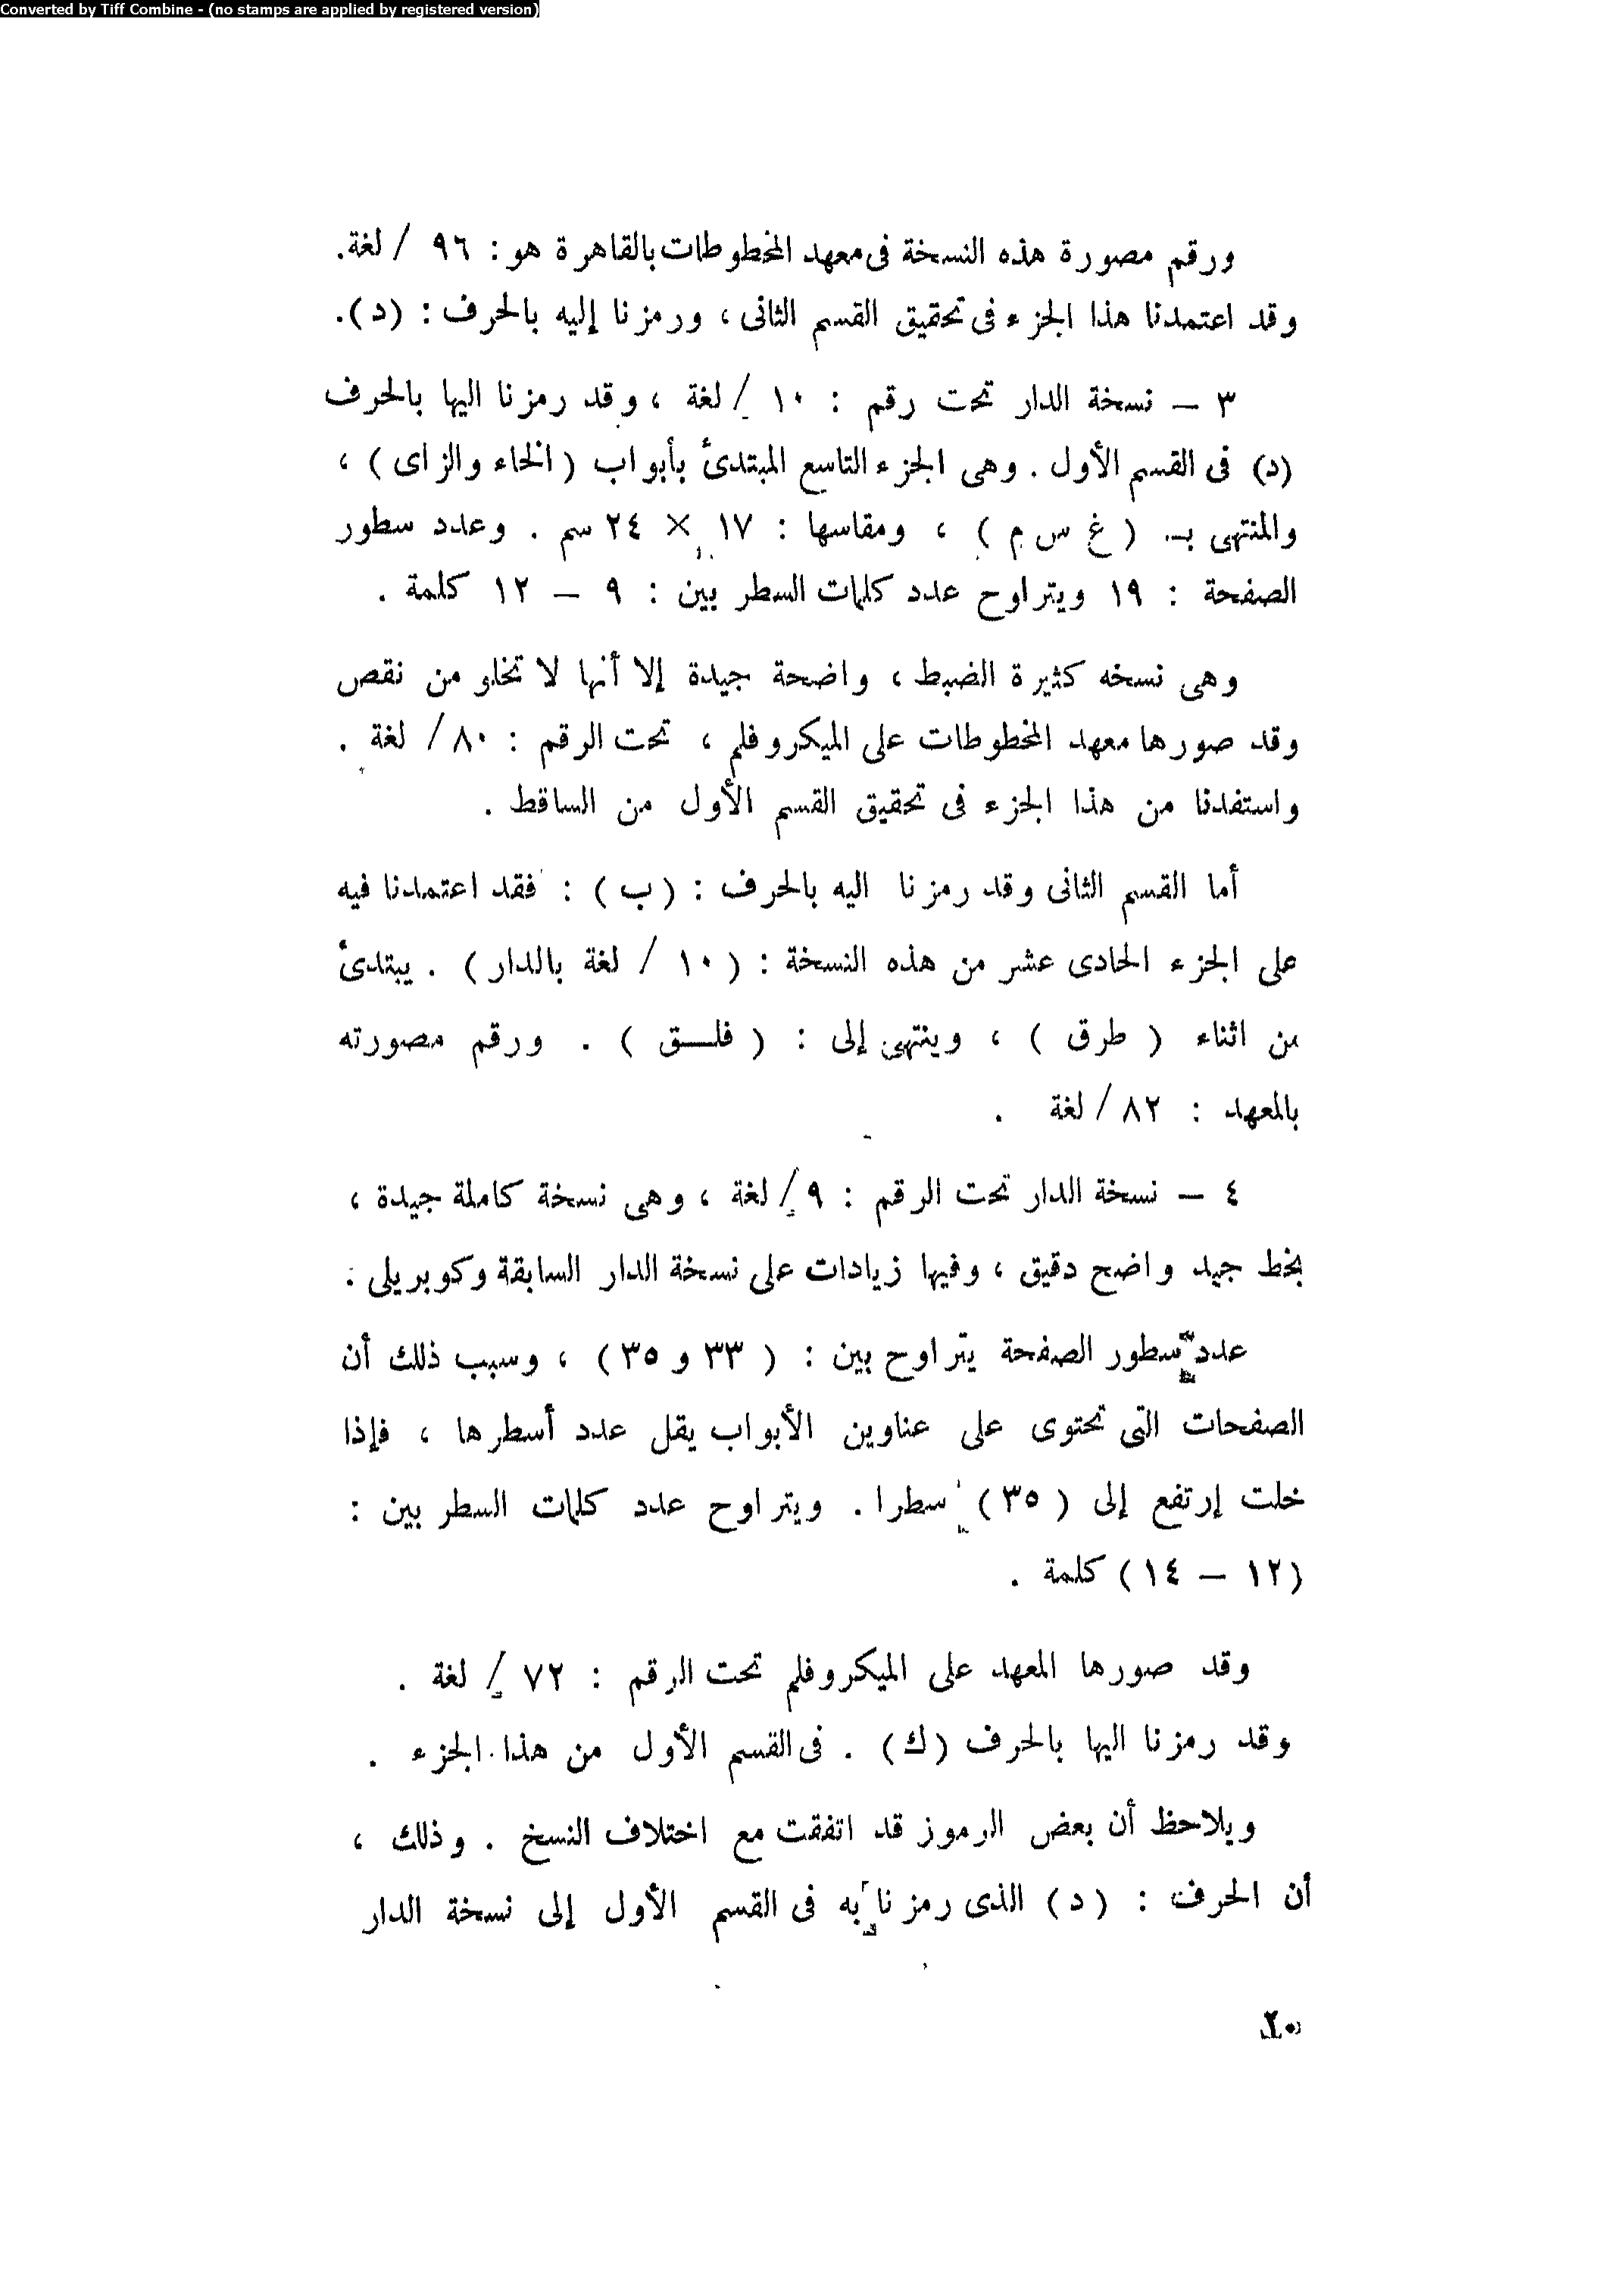 Converted by Tiff Combine - (no stamps are applied by registered version)
ورقم مصورة هذه النسخة فى معهد المخطوطات بالقاهرة هو : ٩٦ / لغة.
وقد اعتمدنا هذا الجزء فى تحقيق القسم الثانى ، ورمزنا إليه بالحرف : (د).
٣ – نسخة الدار تحت رقم : ١٠ / لغة ، وقد رمزنا اليها بالحرف
(د) فى القسم الأول . وهى الجزء التاسع المبتدئ بأبواب (الخاء والزاى) ،
والمنتهى بـ ( غ س م ) ، ومقاسها : ١٧ × ٢٤ سم . وعدد سطور
الصفحة : ١٩ ويتراوح عدد كلمات السطر بين : ٩ – ١٢ كلمة .
وهى نسخه كثيرة الضبط ، واضحة جيدة إلا أنها لا تخلو من نقص
وقد صورها معهد المخطوطات على الميكروفلم ، تحت الرقم : ٨٠ / لغة .
واستفدنا من هذا الجزء فى تحقيق القسم الأول من الساقط .
أما القسم الثانى وقد رمزنا اليه بالحرف : (ب) : فقد اعتمدنا فيه
على الجزء الحادى عشر من هذه النسخة : (١٠ / لغة بالدار) . يبتدئ
من اثناء ( طرق ) ، وينتهى إلى : ( فلسق ) . ورقم مصورته
بالمعهد : ٨٢ / لغة .
٤ – نسخة الدار تحت الرقم : ٩ / لغة ، وهى نسخة كاملة جيدة ،
بخط جيد واضح دقيق ، وفيها زيادات على نسخة الدار السابقة وكوبريلى :
عدد سطور الصفحة يتراوح بين : ( ٣٣ و ٣٥ ) ، وسبب ذلك أن
الصفحات التى تحتوى على عناوين الأبواب يقل عدد أسطرها ، فإذا
خلت إرتفع إلى ( ٣٥ ) سطرا . ويتراوح عدد كلمات السطر بين :
(١٢ – ١٤) كلمة .
وقد صورها المعهد على الميكروفلم تحت الرقم : ٧٢ / لغة .
وقد رمزنا اليها بالحرف (ك) . فى القسم الأول من هذا الجزء .
ويلاحظ أن بعض الرموز قد اتفقت مع اختلاف النسخ . وذلك ،
أن الحرف : (د) الذى رمزنا به فى القسم الأول إلى نسخة الدار
٢٠